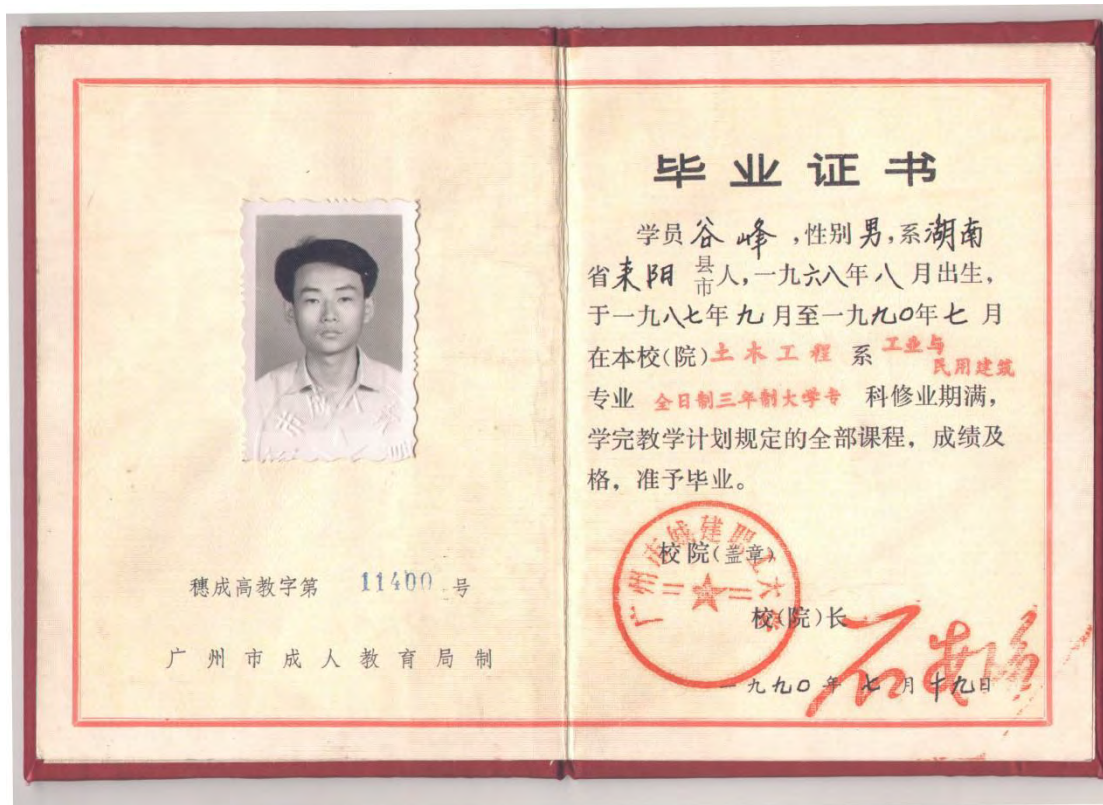 穗成高教字第 11400 号
广州市成人教育局制
毕业证书
学员谷峰，性别男，系湖南
省耒阳县市人，一九六八年八月出生，
于一九八七年九月至一九九〇年七月
在本校(院)土木工程系工业与民用建筑
专业 全日制三年制大学专 科修业期满，
学完教学计划规定的全部课程，成绩及
格，准予毕业。
广州市城建职工大学
校院(盖章)
校(院)长
一九九〇年七月十九日